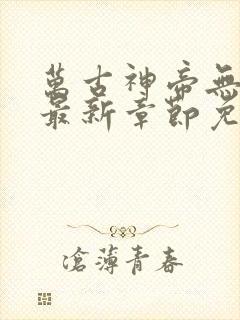 萬古神帝無
最新章節免
滄薄青春